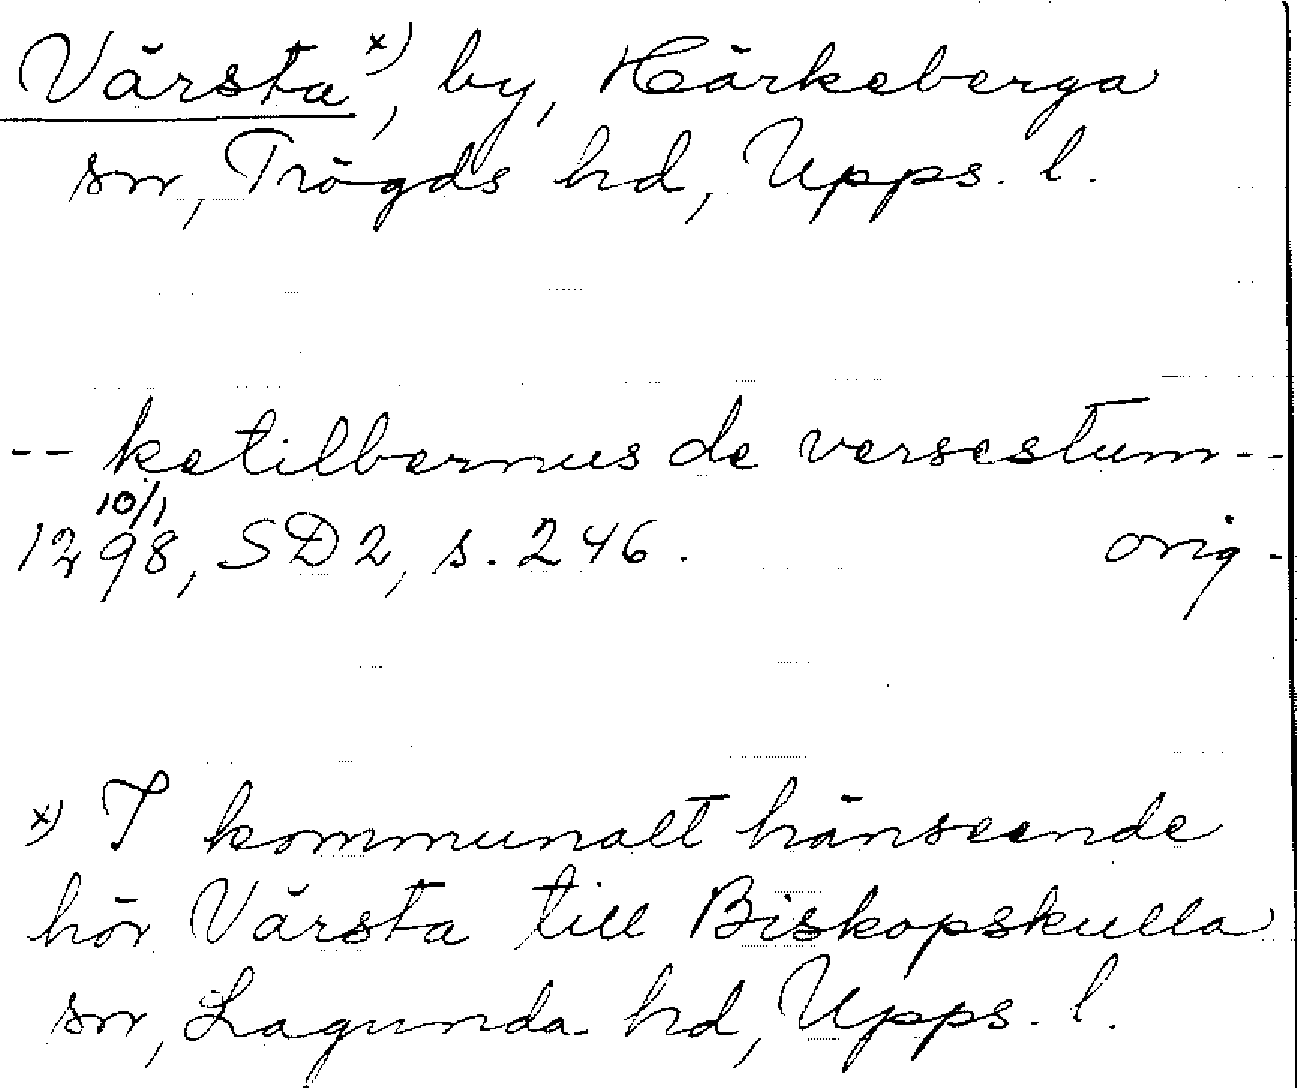 Värsta x), by, Härkeberga
sn, Trögds hd, Upps. l.
-- ketilbernus de versestum --
10/1
1298, SD2, s. 246. orig.
x) I kommunalt hänseende
hör Värsta till Biskopskulla
sn, Lagunda hd, Upps. l.